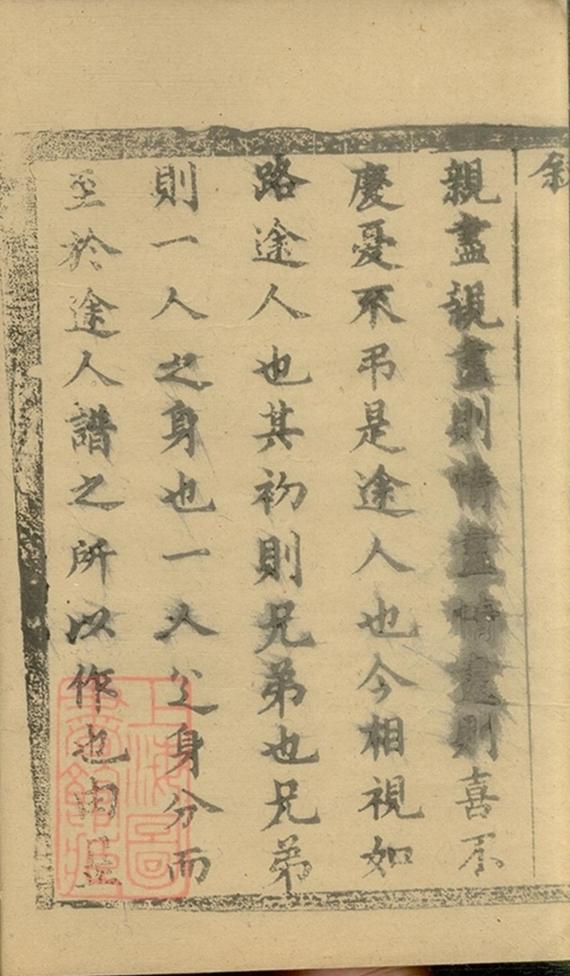 親盡親盡則情盡情盡則喜不
慶憂不弔是途人也今相視如
路途人也其初則兄弟也兄弟
則一人之身也一人之身分而
至於途人譜之所以作也由是
上海圖